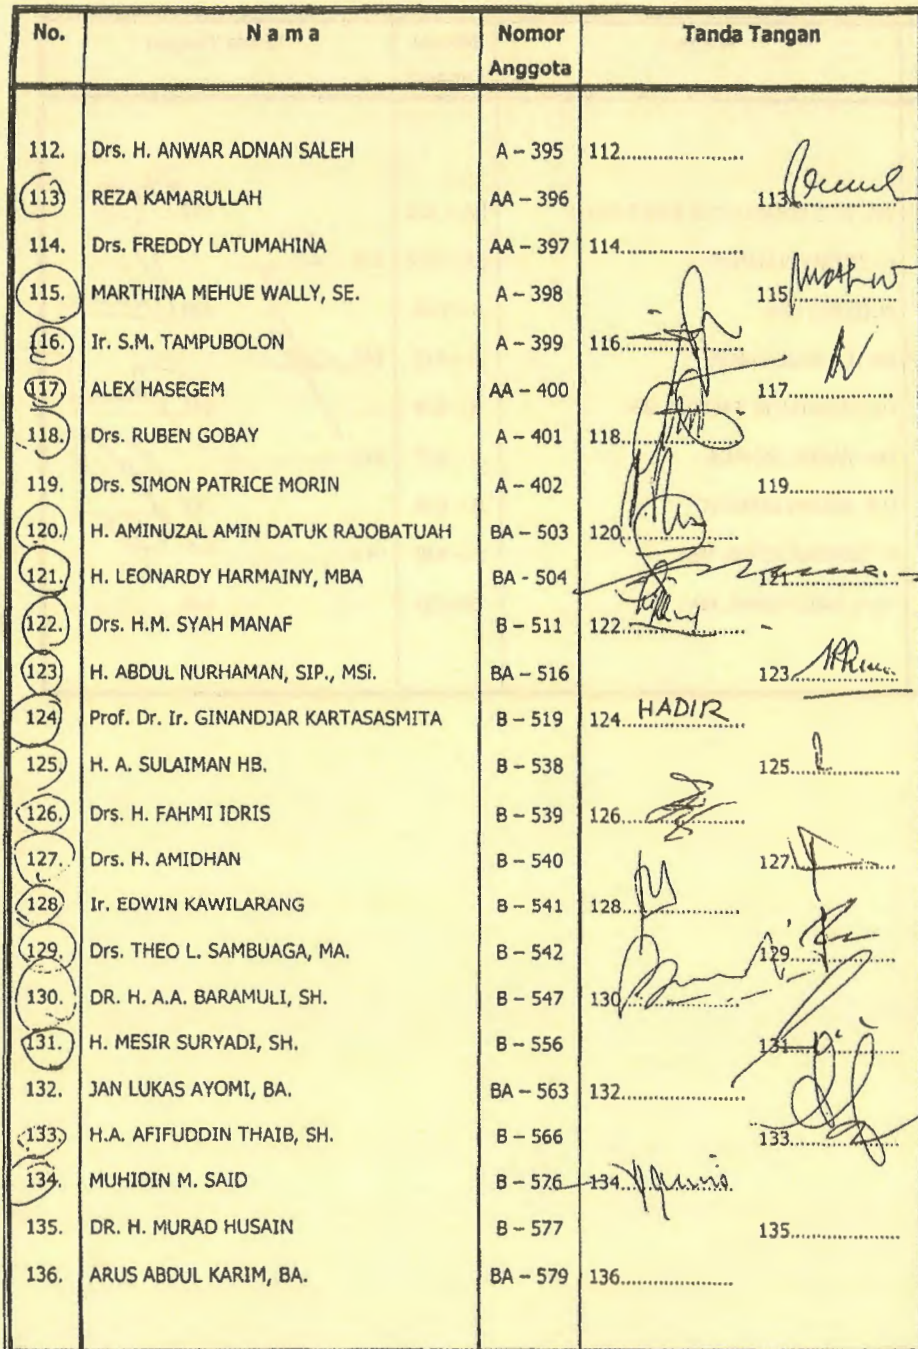 No. Nama Nomor Anggota Tanda Tangan
112. Drs. H. ANWAR ADNAN SALEH A – 395 112......................
113 REZA KAMARULLAH AA – 396 113......................
114. Drs. FREDDY LATUMAHINA AA – 397 114......................
115. MARTHINA MEHUE WALLY, SE. A – 398 115......................
116. Ir. S.M. TAMPUBOLON A – 399 116......................
117. ALEX HASEGEM AA – 400 117......................
118. Drs. RUBEN GOBAY A – 401 118......................
119. Drs. SIMON PATRICE MORIN A – 402 119......................
120. H. AMINUZAL AMIN DATUK RAJOBATUAH BA – 503 120......................
121. H. LEONARDY HARMAINY, MBA BA - 504 121......................
122. Drs. H.M. SYAH MANAF B – 511 122......................
123 H. ABDUL NURHAMAN, SIP., MSi. BA – 516 123......................
124 Prof. Dr. Ir. GINANDJAR KARTASASMITA B – 519 124. HADIR
125. H. A. SULAIMAN HB. B – 538 125......................
126. Drs. H. FAHMI IDRIS B – 539 126......................
127. Drs. H. AMIDHAN B – 540 127......................
128 Ir. EDWIN KAWILARANG B – 541 128......................
129. Drs. THEO L. SAMBUAGA, MA. B – 542 129......................
130. DR. H. A.A. BARAMULI, SH. B – 547 130......................
131. H. MESIR SURYADI, SH. B – 556 131......................
132. JAN LUKAS AYOMI, BA. BA – 563 132......................
133. H.A. AFIFUDDIN THAIB, SH. B – 566 133......................
134. MUHIDIN M. SAID B – 576 134......................
135. DR. H. MURAD HUSAIN B – 577 135......................
136. ARUS ABDUL KARIM, BA. BA – 579 136......................